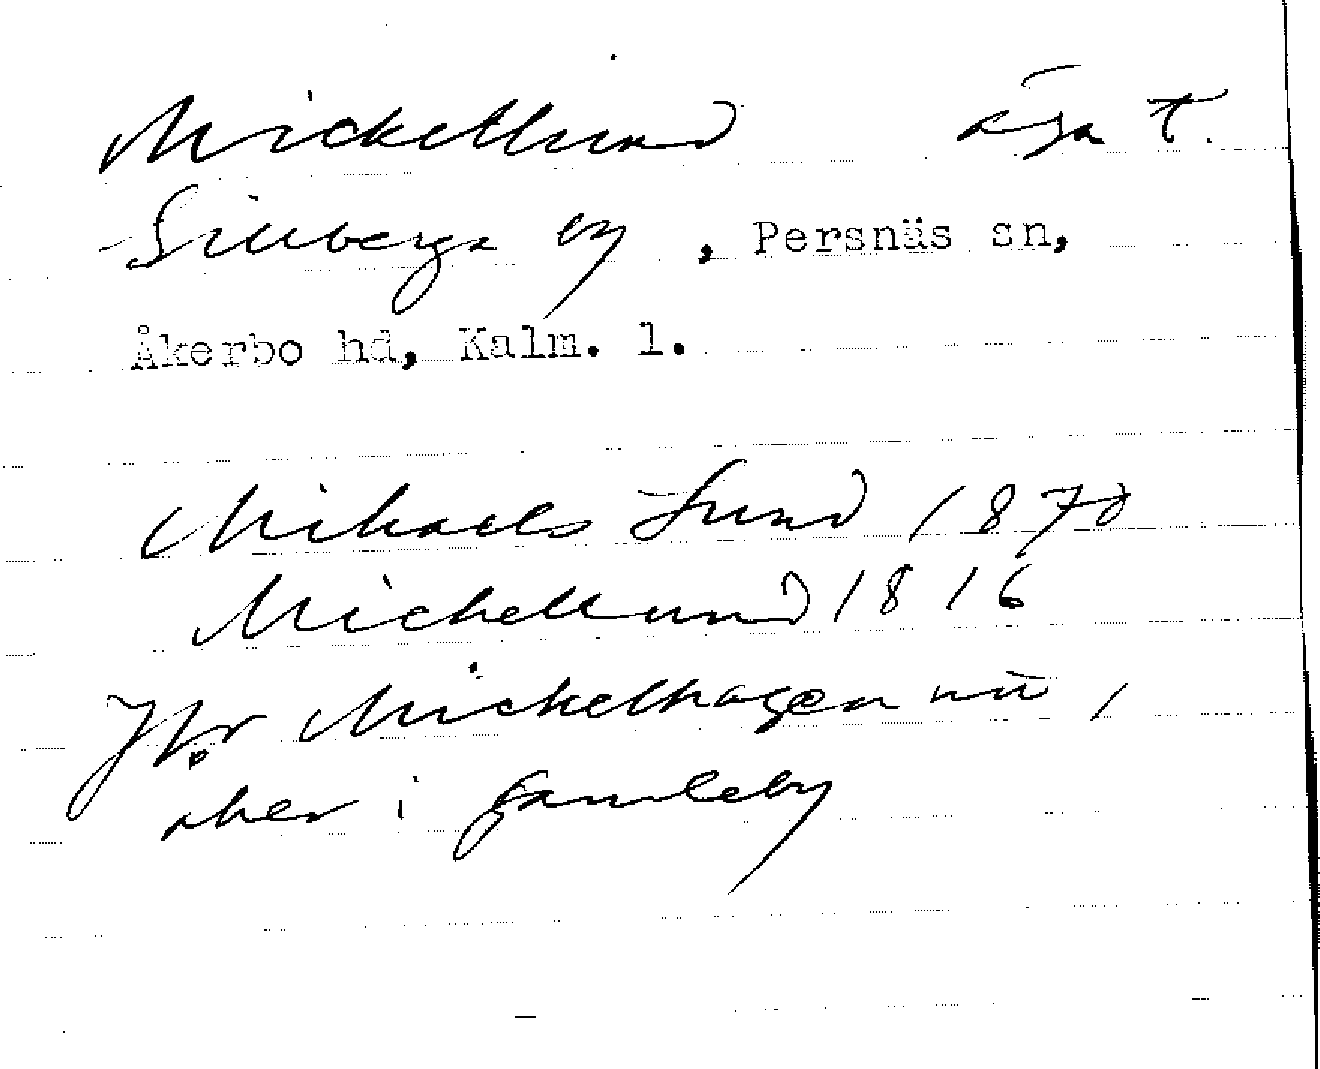 Mickellund äga t.
Sillberga by, Persnäs sn,
Åkerbo hd, Kalm. l.
Mihaels Lund 1870
Michellund 1816
Jfr Mickelhagen nu,
åker i Gamleby